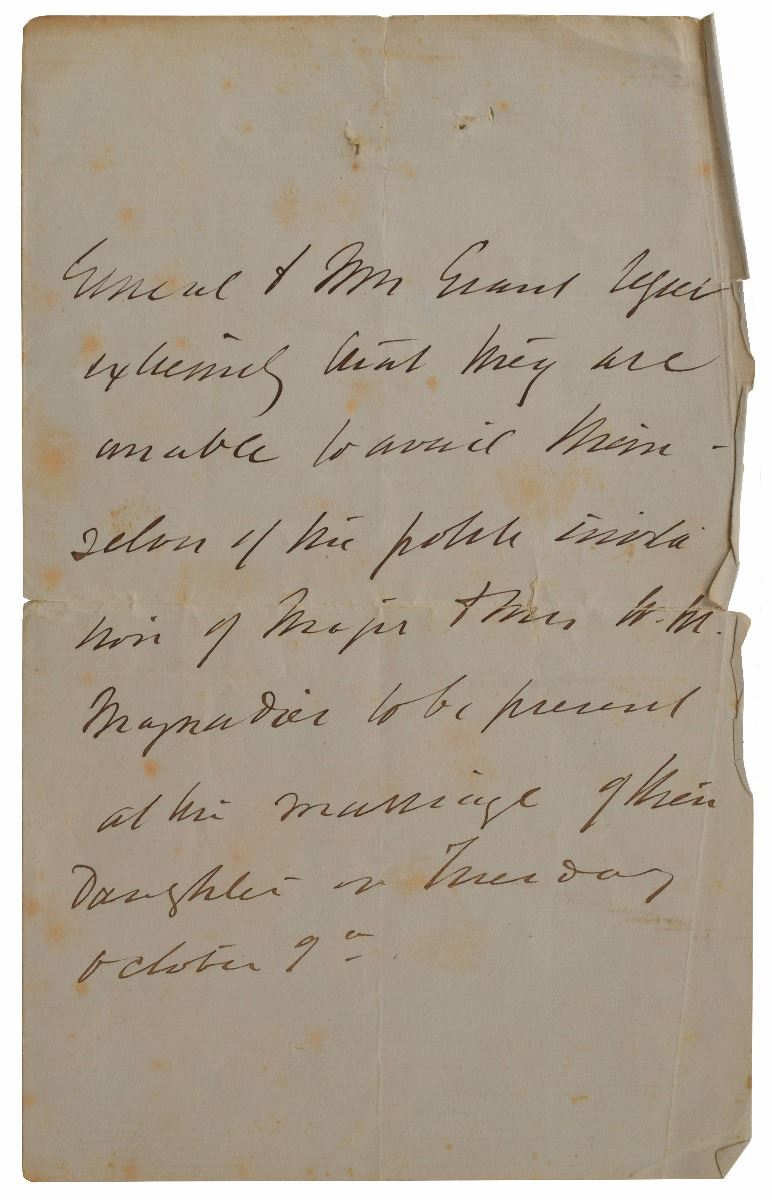 General & Mrs Grant regret
extremely that they are
unable to avail them-
selves of the polite invita
tion of Major & Mrs W. M.
Maynadier to be present
at the marriage of their
Daughter on Tuesday
October 9th